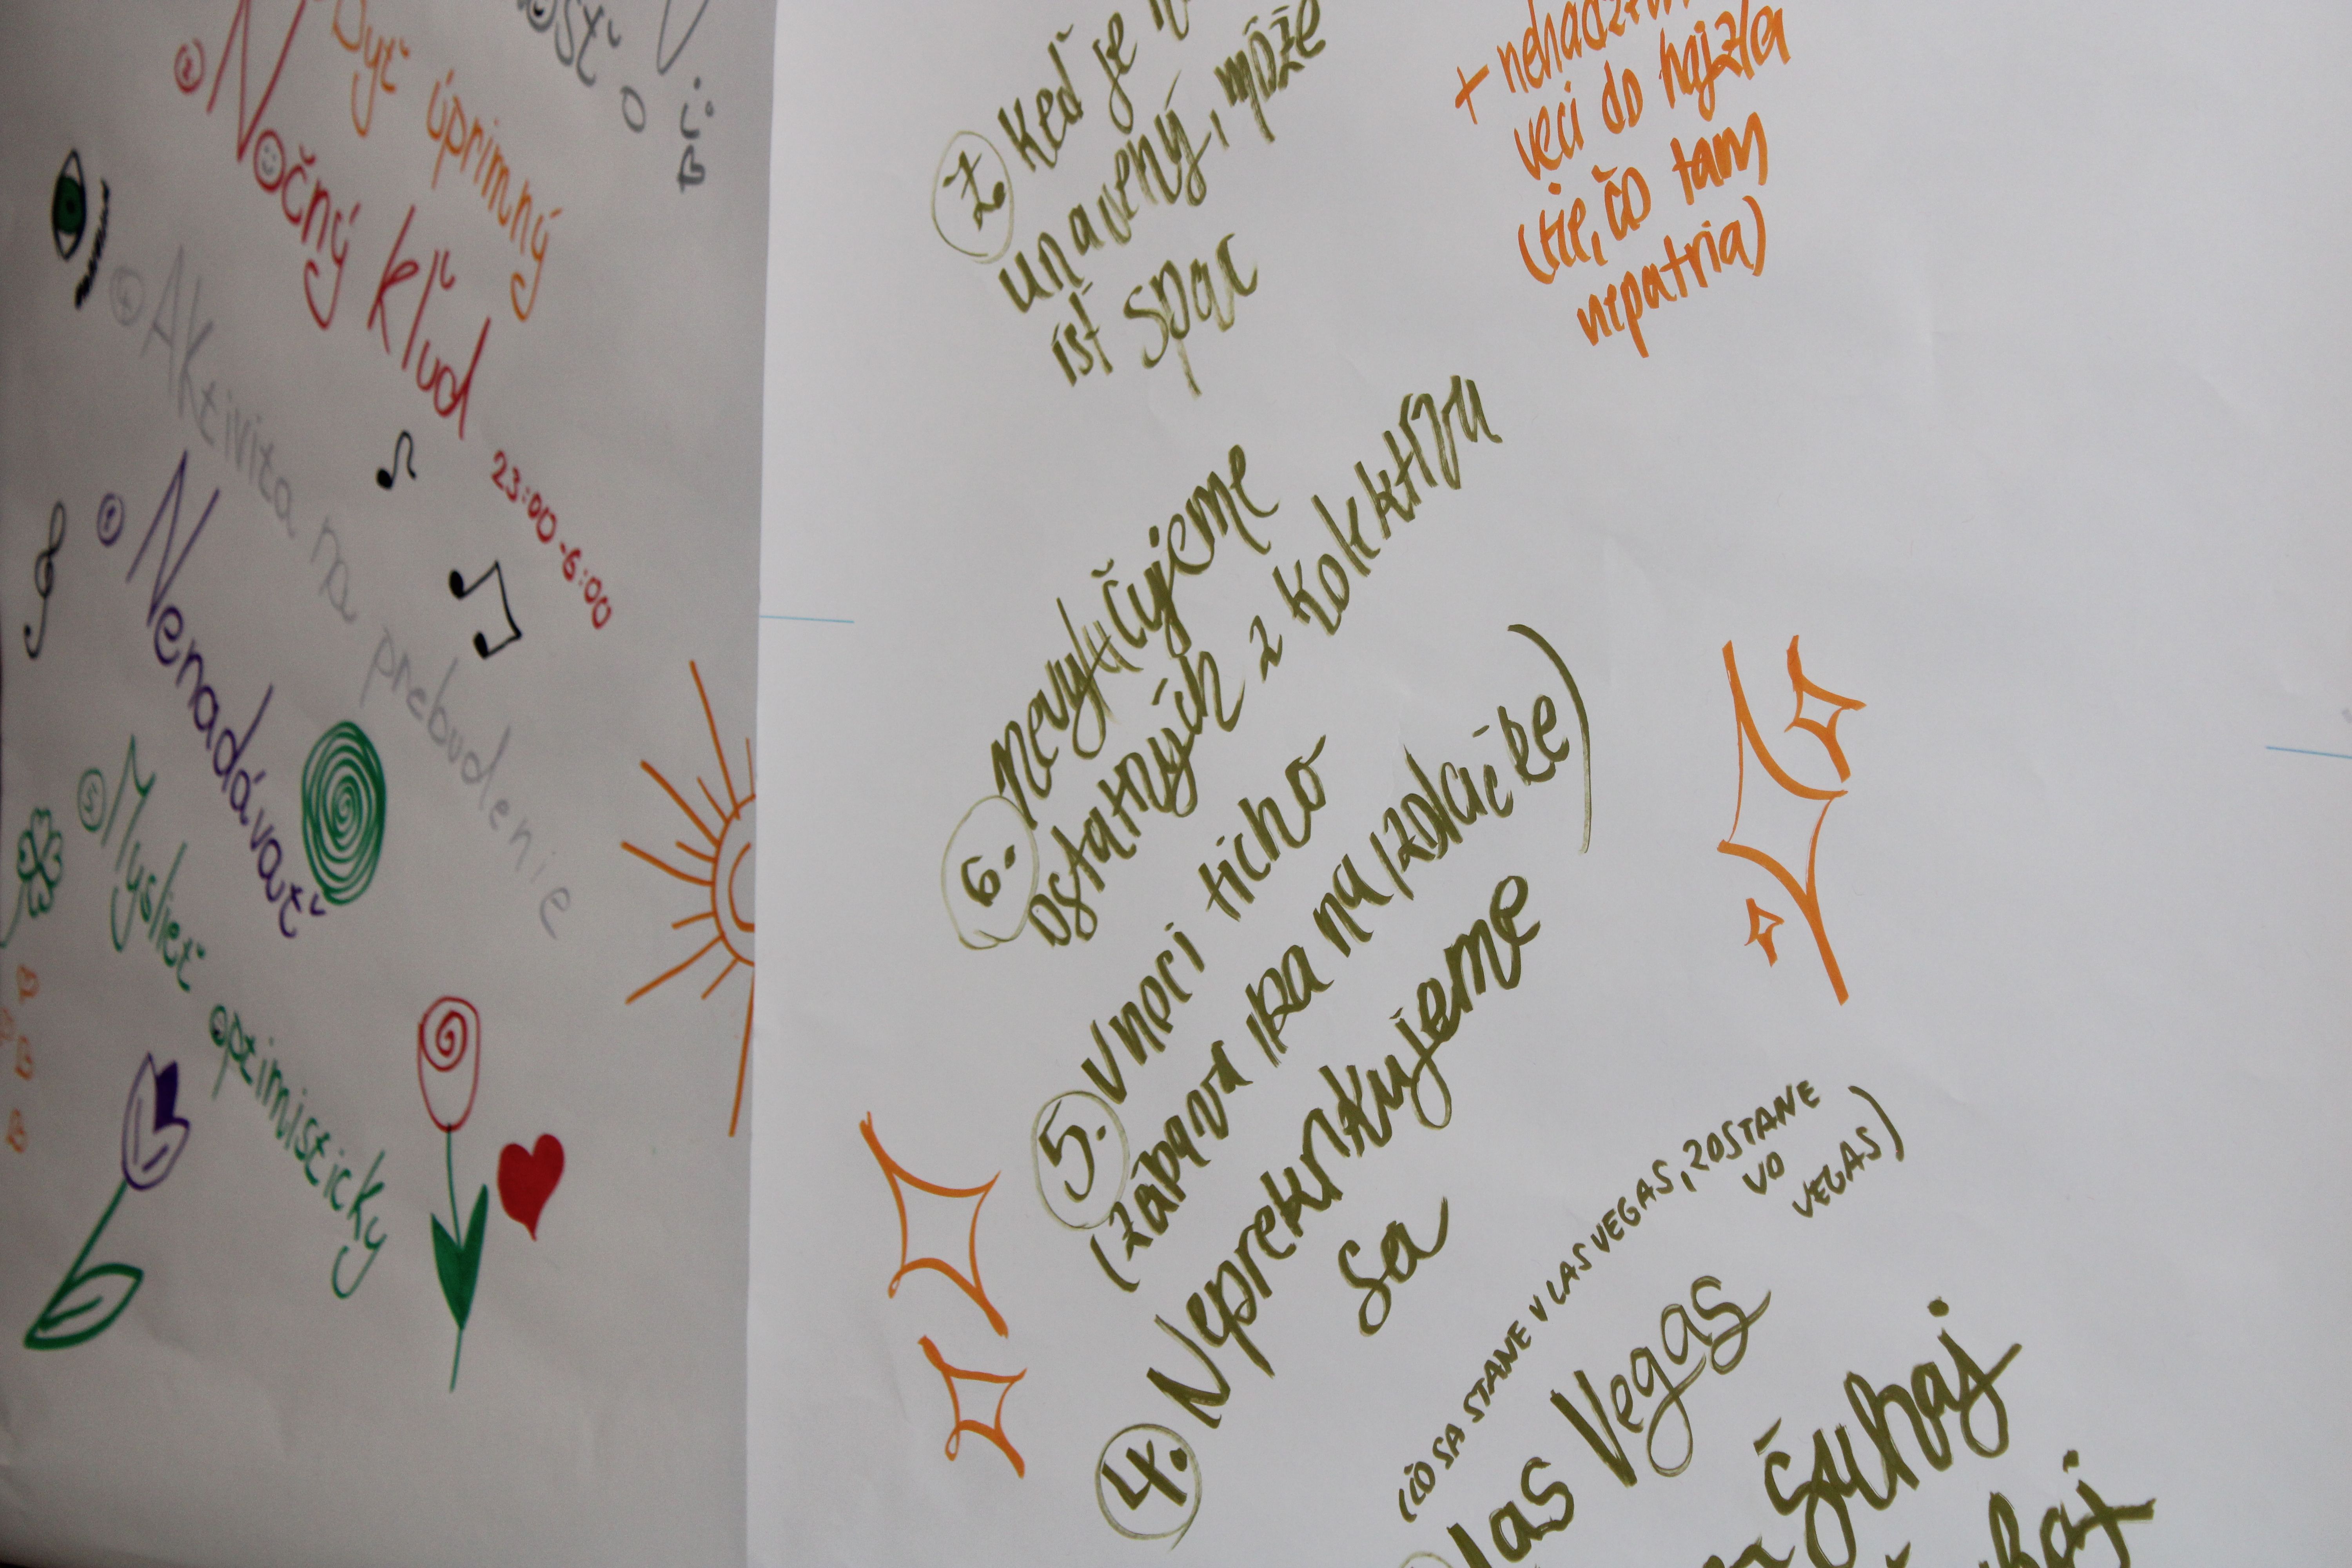 osť o
B
Byť úprimný
② Nočný kľud
23:00-6:00
④ Aktivita na prebudenie
① Nenadávať
⑤ Myslieť optimisticky
B
B
7. Keď je
unavený, môže
ísť spac
+
veci do hajzla
(tie, čo tam
nepatria)
6. nevylučujeme
ostatných z kolektívu
5. V noci ticho
(zábava iba na izolačke)
4. Neprekrikujeme
sa
(ČO SA STANE V LAS VEGAS, ZOSTANE
VO
VEGAS)
las Vegas
šuhaj